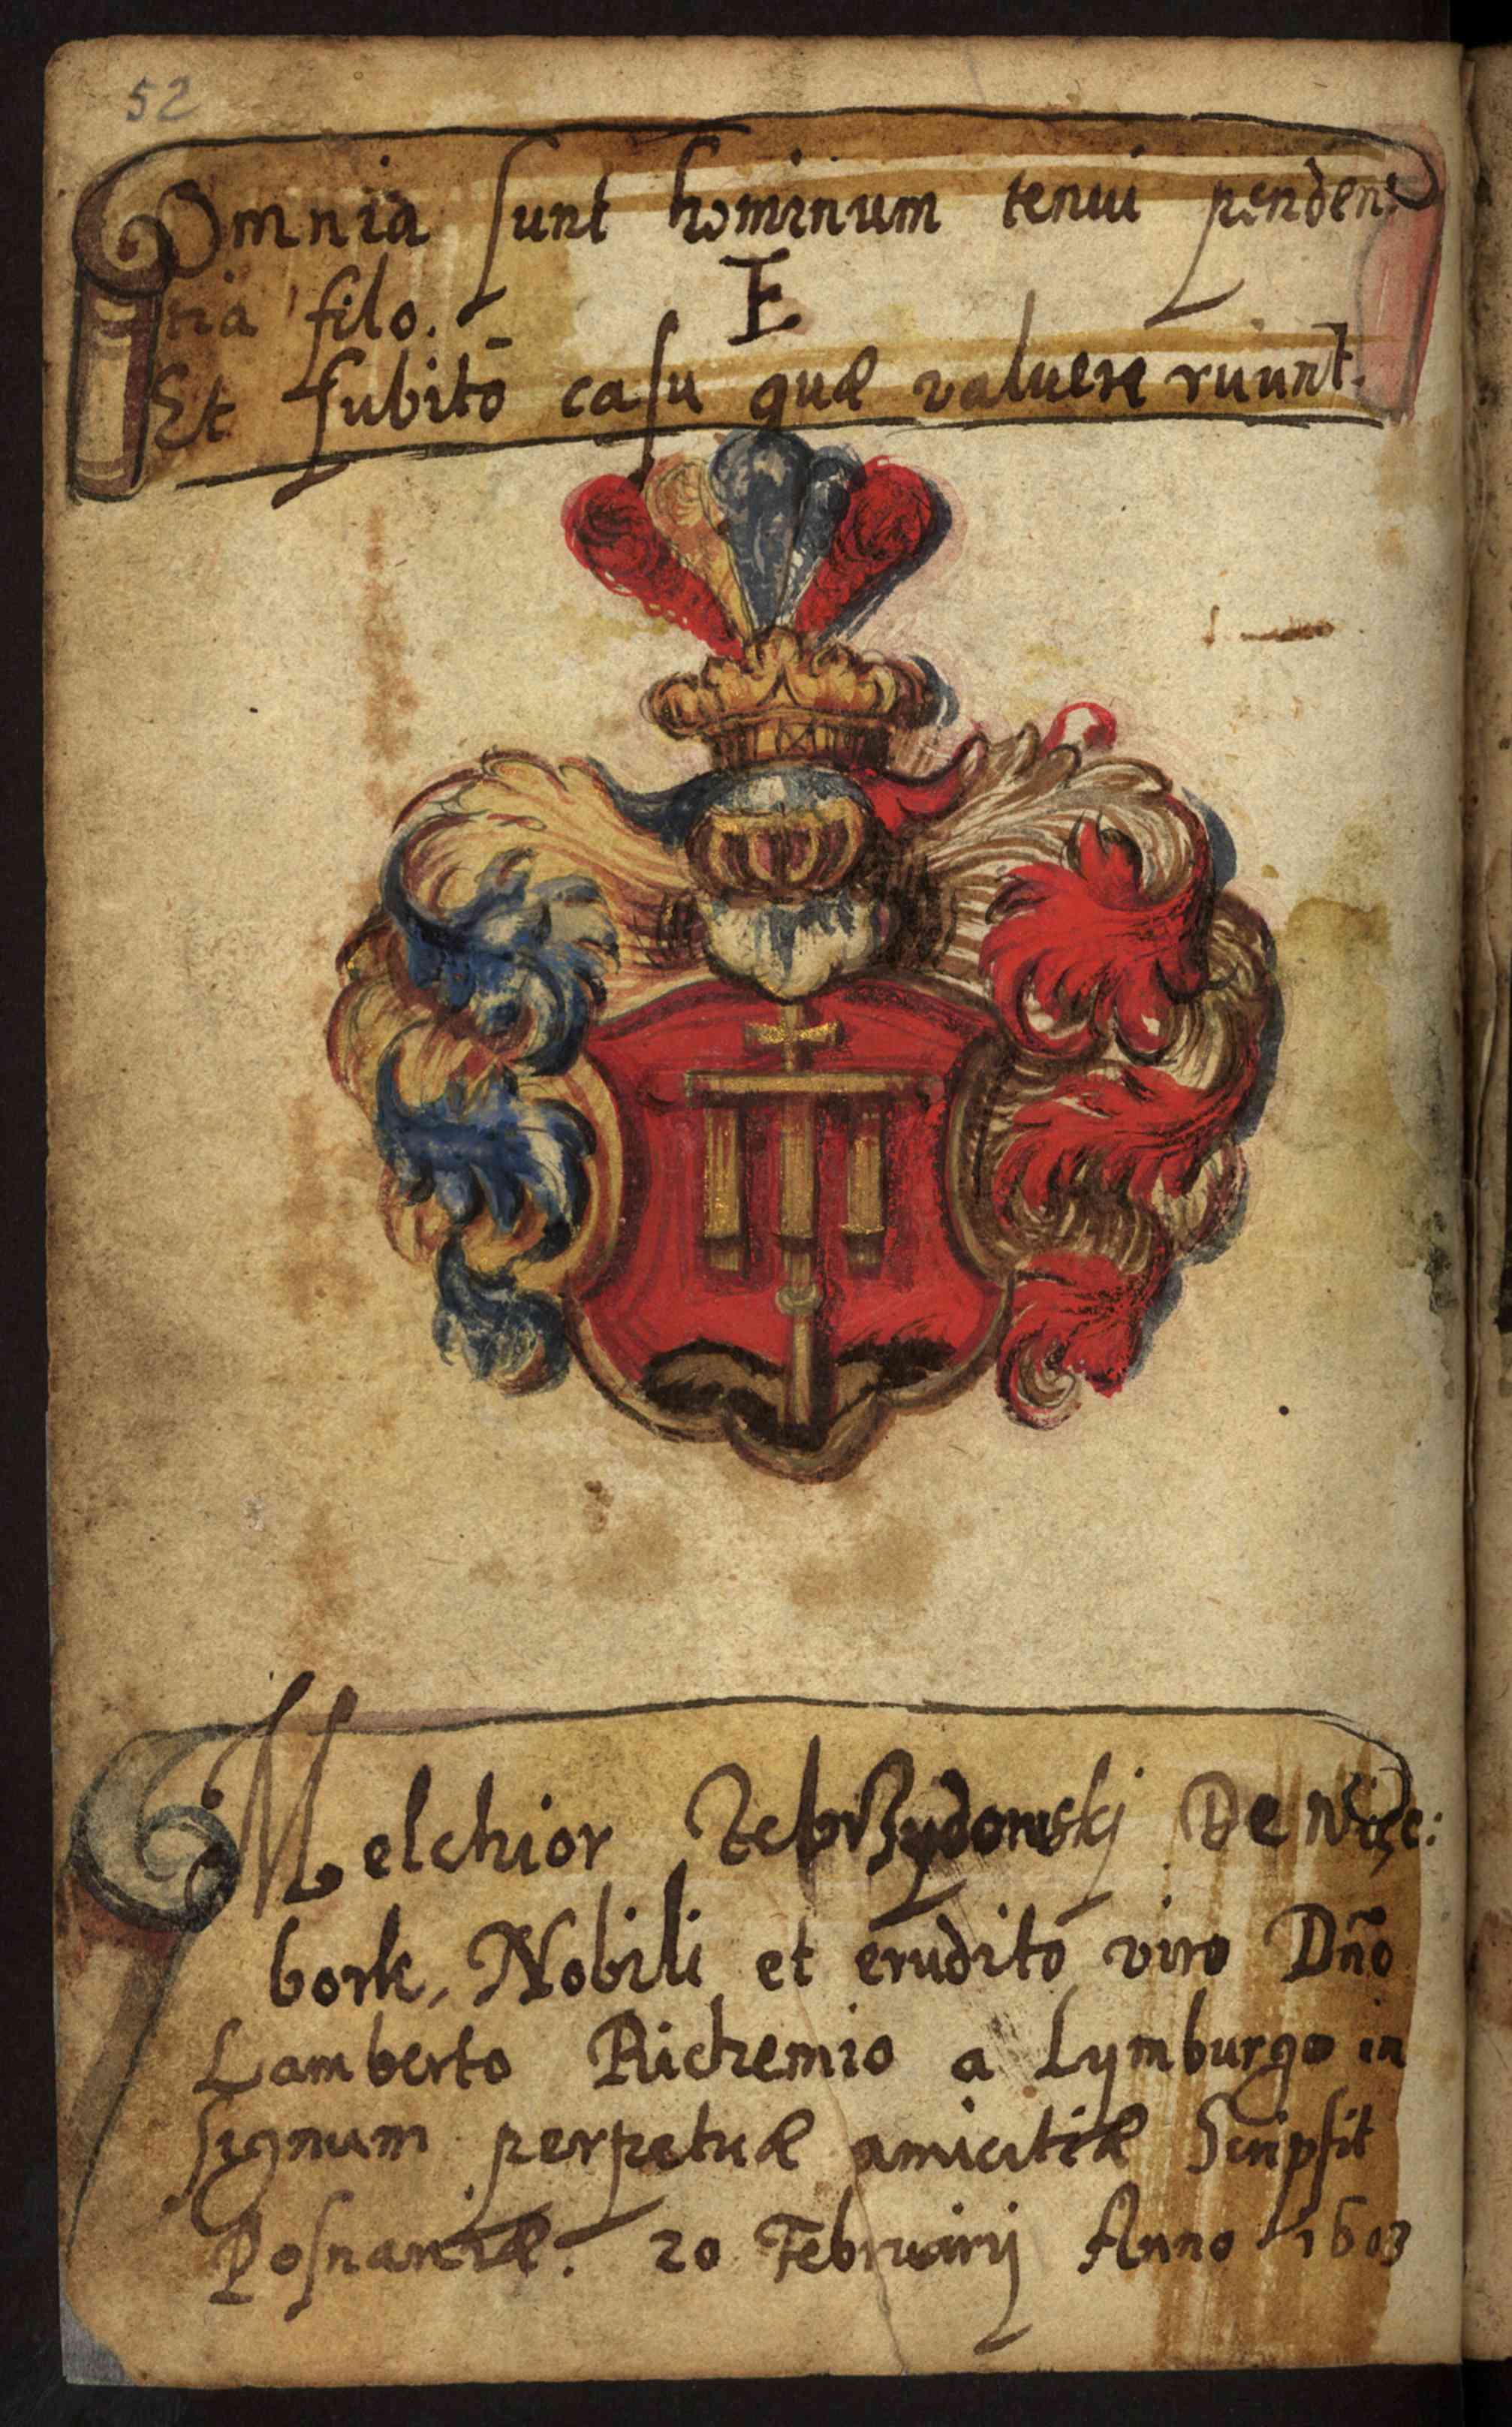 52
Omnia sunt hominum tenui penden:
tia filo.
E
Et subitò casu quæ valuere ruunt.
Melchior Zebrzydowskj De Więc:
bork, Nobili et erudito viro Dño
Lamberto Richemio a Lymburgo in
signum perpetuæ amicitiæ Scripsit
Posnaniæ. 20 Februarij Anno 1603